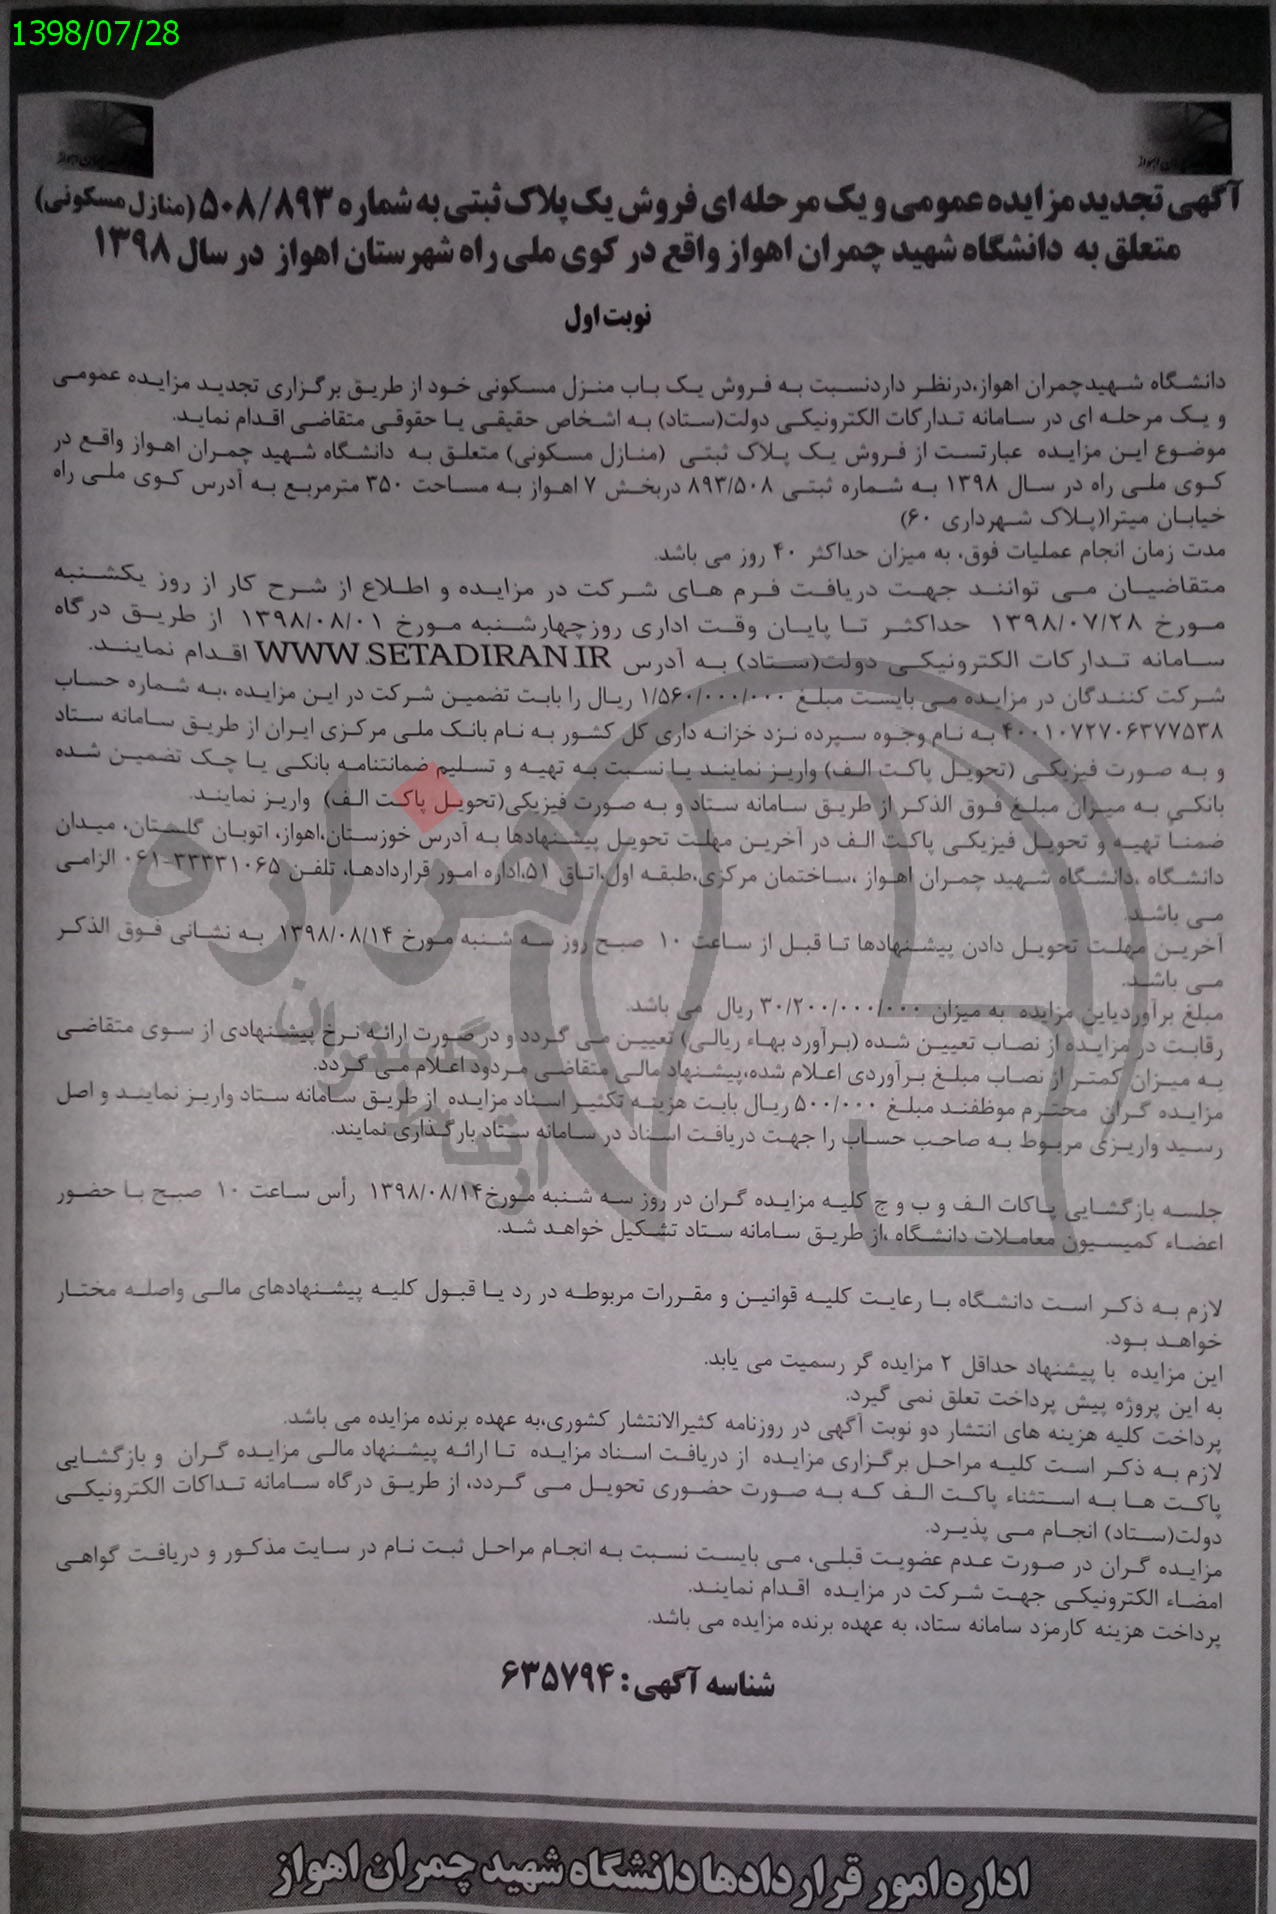 1398/07/28
آگهی تجدید مزایده عمومی و یک مرحله ای فروش یک پلاک ثبتی به شماره ۵۰۸/۸۹۳ (منازل مسکونی)
متعلق به دانشگاه شهید چمران اهواز واقع در کوی ملی راه شهرستان اهواز در سال ۱۳۹۸
نوبت اول
دانشگاه شهیدچمران اهواز،درنظر داردنسبت به فروش یک باب منزل مسکونی خود از طریق برگزاری تجدید مزایده عمومی
و یک مرحله ای در سامانه تدارکات الکترونیکی دولت(ستاد) به اشخاص حقیقی یا حقوقی متقاضی اقدام نماید.
موضوع این مزایده عبارتست از فروش یک پلاک ثبتی (منازل مسکونی) متعلق به دانشگاه شهید چمران اهواز واقع در
کوی ملی راه در سال ۱۳۹۸ به شماره ثبتی ۸۹۳/۵۰۸ دربخش ۷ اهواز به مساحت ۳۵۰ مترمربع به آدرس کوی ملی راه
خیابان میترا(پلاک شهرداری ۶۰)
مدت زمان انجام عملیات فوق، به میزان حداکثر ۴۰ روز می باشد.
متقاضیان می توانند جهت دریافت فرم های شرکت در مزایده و اطلاع از شرح کار از روز یکشنبه
مورخ ۱۳۹۸/۰۷/۲۸ حداکثر تا پایان وقت اداری روزچهارشنبه مورخ ۱۳۹۸/۰۸/۰۱ از طریق درگاه
سامانه تدارکات الکترونیکی دولت(ستاد) به آدرس WWW.SETADIRAN.IR اقدام نمایند.
شرکت کنندگان در مزایده می بایست مبلغ ۱/۵۶۰/۰۰۰/۰۰۰ ریال را بابت تضمین شرکت در این مزایده ،به شماره حساب
۴۰۰۱۰۷۲۷۰۶۳۷۷۵۳۸ به نام وجوه سپرده نزد خزانه داری کل کشور به نام بانک ملی مرکزی ایران از طریق سامانه ستاد
و به صورت فیزیکی (تحویل پاکت الف) واریز نمایند یا نسبت به تهیه و تسلیم ضمانتنامه بانکی یا چک تضمین شده
بانکی به میزان مبلغ فوق الذکر از طریق سامانه ستاد و به صورت فیزیکی(تحویل پاکت الف) واریز نمایند.
ضمناً تهیه و تحویل فیزیکی پاکت الف در آخرین مهلت تحویل پیشنهادها به آدرس خوزستان،اهواز، اتوبان گلستان، میدان
دانشگاه ،دانشگاه شهید چمران اهواز ،ساختمان مرکزی،طبقه اول،اتاق ۵۱،اداره امور قراردادها، تلفن ۳۳۳۳۱۰۶۵-۰۶۱ الزامی
می باشد.
آخرین مهلت تحویل دادن پیشنهادها تا قبل از ساعت ۱۰ صبح روز سه شنبه مورخ ۱۳۹۸/۰۸/۱۴ به نشانی فوق الذکر
می باشد.
مبلغ برآوردیاین مزایده به میزان ۳۰/۲۰۰/۰۰۰/۰۰۰ ریال می باشد.
رقابت در مزایده از نصاب تعیین شده (برآورد بهاء ریالی) تعیین می گردد و در صورت ارائه نرخ پیشنهادی از سوی متقاضی
به میزان کمتر از نصاب مبلغ برآوردی اعلام شده،پیشنهاد مالی متقاضی مردود اعلام می گردد.
مزایده گران محترم موظفند مبلغ ۵۰۰/۰۰۰ ریال بابت هزینه تکثیر اسناد مزایده از طریق سامانه ستاد واریز نمایند و اصل
رسید واریزی مربوط به صاحب حساب را جهت دریافت اسناد در سامانه ستاد بارگذاری نمایند.
جلسه بازگشایی پاکات الف و ب و ج کلیه مزایده گران در روز سه شنبه مورخ۱۳۹۸/۰۸/۱۴ رأس ساعت ۱۰ صبح با حضور
اعضاء کمیسیون معاملات دانشگاه ،از طریق سامانه ستاد تشکیل خواهد شد.
لازم به ذکر است دانشگاه با رعایت کلیه قوانین و مقررات مربوطه در رد یا قبول کلیه پیشنهادهای مالی واصله مختار
خواهد بود.
این مزایده با پیشنهاد حداقل ۲ مزایده گر رسمیت می یابد.
به این پروژه پیش پرداخت تعلق نمی گیرد.
پرداخت کلیه هزینه های انتشار دو نوبت آگهی در روزنامه کثیرالانتشار کشوری،به عهده برنده مزایده می باشد.
لازم به ذکر است کلیه مراحل برگزاری مزایده از دریافت اسناد مزایده تا ارائه پیشنهاد مالی مزایده گران و بازگشایی
پاکت ها به استثناء پاکت الف که به صورت حضوری تحویل می گردد، از طریق درگاه سامانه تداکات الکترونیکی
دولت(ستاد) انجام می پذیرد.
مزایده گران در صورت عدم عضویت قبلی، می بایست نسبت به انجام مراحل ثبت نام در سایت مذکور و دریافت گواهی
امضاء الکترونیکی جهت شرکت در مزایده اقدام نمایند.
پرداخت هزینه کارمزد سامانه ستاد، به عهده برنده مزایده می باشد.
شناسه آگهی: ۶۳۵۷۹۴
اداره امور قراردادها دانشگاه شهید چمران اهواز